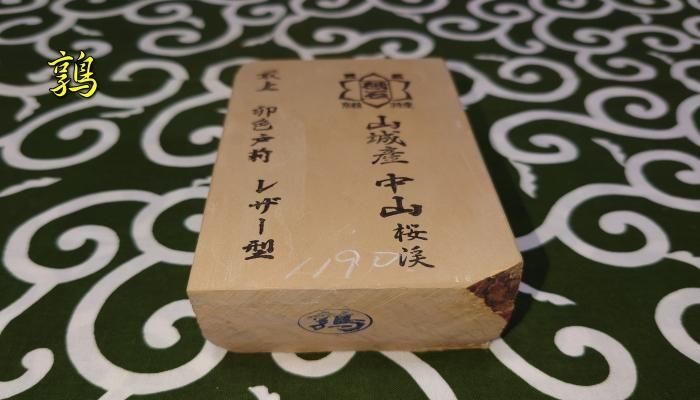 鶉
砥石
山城産 中山 桜渓
最上 卵色戸前 レザー型
1190
鶉